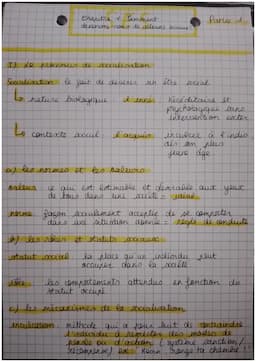 Chapitre 1 : Comment
devenons-nous des acteurs sociaux ?
Partie 1.
I) Le processus de socialisation
Socialisation : le fait de devenir un être social
nature biologique l'inné héréditaire et
psychologique sans
intervention exter
contexte social l'acquis à l'indiv
dès son plus
jeune âge.
a) les normes et les valeurs
valeurs : ce qui est estimable et désirable aux yeux
de tous dans une société = idéal
norme : façon socialement acceptée de se comporter
dans une situation donnée = règle de conduite
b) les rôles et statuts sociaux
statut social : la place qu'un individu peut
occuper dans la société
rôle : les comportements attendus en fonction du
statut occupé.
c) les mécanismes de la socialisation
méthode qui a pour but de contraindre
l'individu à des modes de
pensée ou d'action (système sanction/
récompense) range ta chambre !"